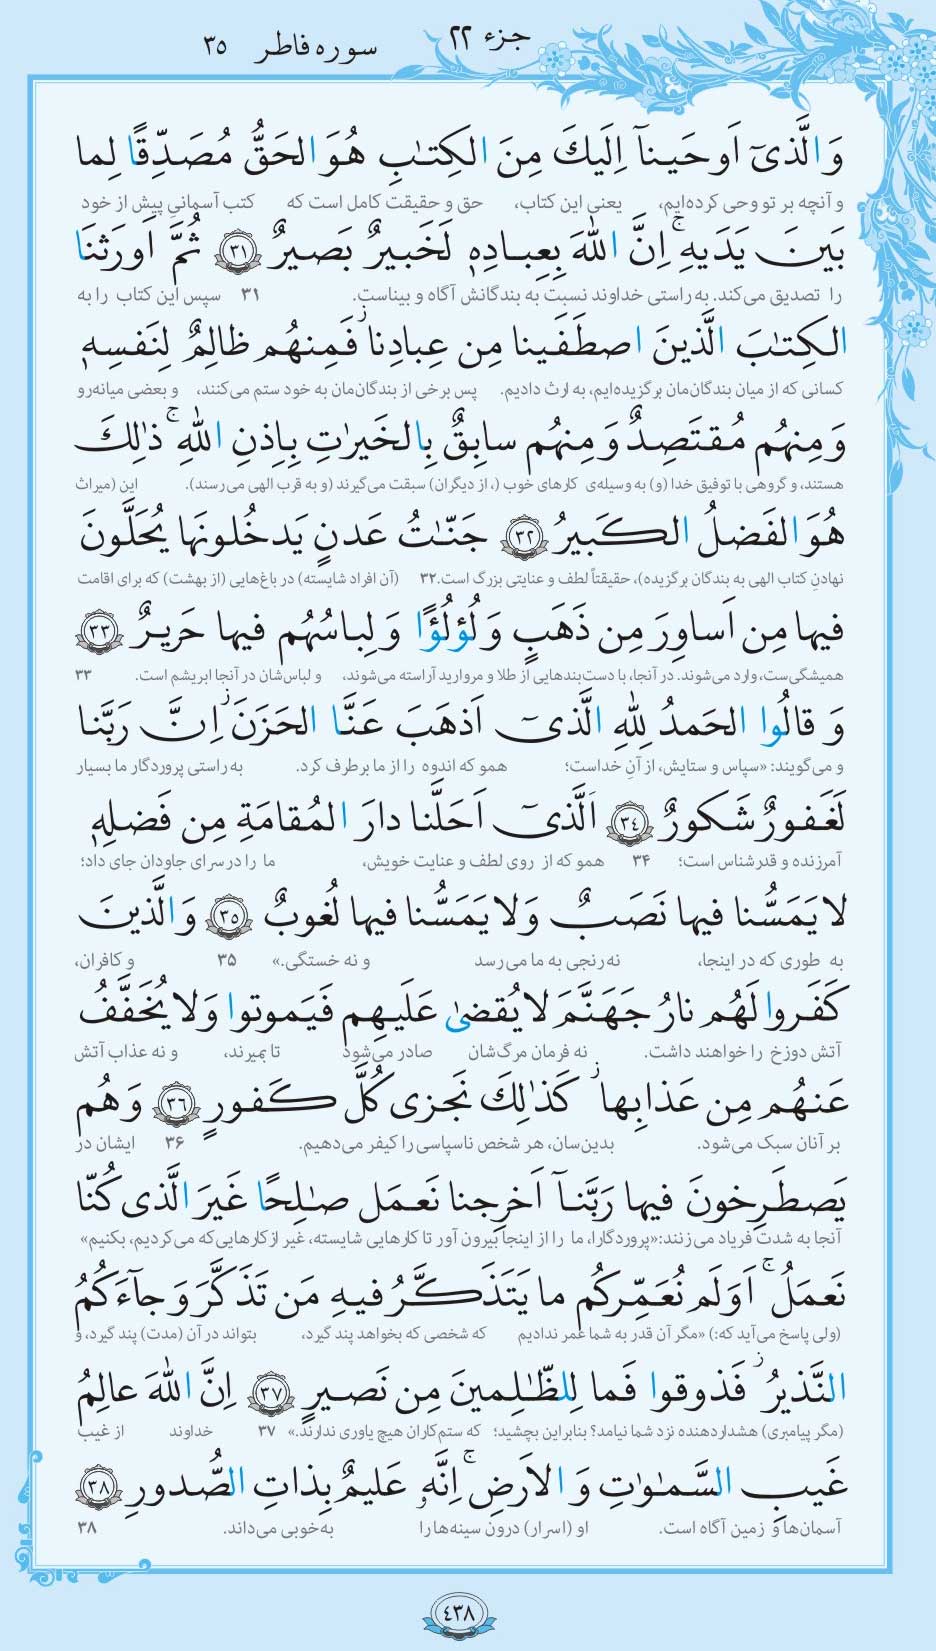 جزء ۲۲
سوره فاطر ۳۵
وَالَّذیٓ اَوحَینآ اِلَیكَ مِنَ الكِتـٰبِ هُوَ الحَقُّ مُصَدِّقًا لِما
و آنچه بر تو وحی کرده‌ایم، یعنی این کتاب، حق و حقیقت کامل است که کتب آسمانیِ پیش از خود
بَینَ یَدَیهِ ۚ اِنَّ اللّٰهَ بِعِبادِهٖ لَخَبیرٌ بَصیرٌ ٣١ ثُمَّ اَورَثنَا
را تصدیق می‌کند. به راستی خداوند نسبت به بندگانش آگاه و بیناست. ۳۱ سپس این کتاب را به
الكِتـٰبَ الَّذینَ اصطَفَینا مِن عِبادِنا ۖ فَمِنهُم ظالِمٌ لِنَفسِهٖ
کسانی که از میان بندگان‌مان برگزیده‌ایم، به ارث دادیم. پس برخی از بندگان‌مان به خود ستم می‌کنند، و بعضی میانه‌رو
وَ مِنهُم مُقتَصِدٌ وَ مِنهُم سابِقٌ بِالخَیرٰتِ بِاِذنِ اللّٰهِ ۚ ذٰلِكَ
هستند، و گروهی با توفیق خدا (و) به وسیله‌ی کارهای خوب (، از دیگران) سبقت می‌گیرند (و به قرب الهی می‌رسند). این (میراث
هُوَ الفَضلُ الكَبیرُ ٣٢ جَنّـٰتُ عَدنٍ یَدخُلونَها یُحَلَّونَ
نهادنِ کتاب الهی به بندگان برگزیده)، حقیقتاً لطف و عنایتی بزرگ است. ۳۲ (آن افراد شایسته) در باغ‌هایی (از بهشت) که برای اقامت
فیها مِن اَساوِرَ مِن ذَهَبٍ وَ لُؤلُؤًا وَ لِباسُهُم فیها حَریرٌ ٣٣
همیشگی‌ست، وارد می‌شوند. در آنجا، با دست‌بندهایی از طلا و مروارید آراسته می‌شوند، و لباس‌شان در آنجا ابریشم است. ۳۳
وَ قالُوا الحَمدُ لِلّٰهِ الَّذیٓ اَذهَبَ عَنَّا الحَزَنَ ۖ اِنَّ رَبَّنا
و می‌گویند: «سپاس و ستایش، از آنِ خداست؛ همو که اندوه را از ما برطرف کرد. به راستی پروردگار ما بسیار
لَغَفورٌ شَكورٌ ٣٤ اَلَّذیٓ اَحَلَّنا دارَ المُقامَةِ مِن فَضلِهٖ
آمرزنده و قدرشناس است؛ ۳۴ همو که از روی لطف و عنایت خویش، ما را در سرای جاودان جای داد؛
لا یَمَسُّنا فیها نَصَبٌ وَ لا یَمَسُّنا فیها لُغوبٌ ٣٥ وَ الَّذینَ
به طوری که در اینجا، نه رنجی به ما می‌رسد و نه خستگی.» ۳۵ و کافران،
كَفَروا لَهُم نارُ جَهَنَّمَ لا یُقضىٰ عَلَیهِم فَیَموتوا وَ لا یُخَفَّفُ
آتش دوزخ را خواهند داشت. نه فرمان مرگ‌شان صادر می‌شود تا بمیرند، و نه عذاب آتش
عَنهُم مِن عَذابِها ۚ كَذٰلِكَ نَجزی كُلَّ كَفورٍ ٣٦ وَ هُم
بر آنان سبک می‌شود. بدین‌سان، هر شخص ناسپاسی را کیفر می‌دهیم. ۳۶ ایشان در
یَصطَرِخونَ فیها رَبَّنآ اَخرِجنا نَعمَل صـٰلِحًا غَیرَ الَّذی كُنّا
آنجا به شدت فریاد می‌زنند: «پروردگارا، ما را از اینجا بیرون آور تا کارهایی شایسته، غیر از کارهایی که می‌کردیم، بکنیم»
نَعمَلُ ۚ اَوَ لَم نُعَمِّركُم ما یَتَذَكَّرُ فیهِ مَن تَذَكَّرَ وَ جآءَكُمُ
(ولی پاسخ می‌آید که:) «مگر آن قدر به شما عمر ندادیم که شخصی که بخواهد پند گیرد، بتواند در آن (مدت) پند گیرد، و
النَّذیرُ ۖ فَذوقوا فَما لِلظّـٰلِمینَ مِن نَصیرٍ ٣٧ اِنَّ اللّٰهَ عالِمُ
(مگر پیامبری) هشداردهنده نزد شما نیامد؟ بنابراین بچشید؛ که ستم‌کاران هیچ یاوری ندارند.» ۳۷ خداوند از غیب
غَیبِ السَّمـٰوٰتِ وَ الاَرضِ ۚ اِنَّهٗ عَلیمٌ بِذاتِ الصُّدورِ ٣٨
آسمان‌ها و زمین آگاه است. او (اسرارِ) درون سینه‌ها را به‌خوبی می‌داند. ۳۸
٤٣٨